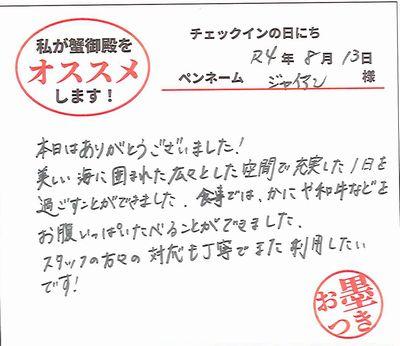 私が蟹御殿を
オススメ
します！
チェックインの日にち
R4年 8月 13日
ペンネーム ジャイアン 様
本日はありがとうございました！
美しい海に囲まれた広々とした空間で充実した1日を
過ごすことができました。食事では、かにや和牛などを
お腹いっぱいたべることができました。
スタッフの方々の対応も丁寧でまた利用したい
です！
お墨つき